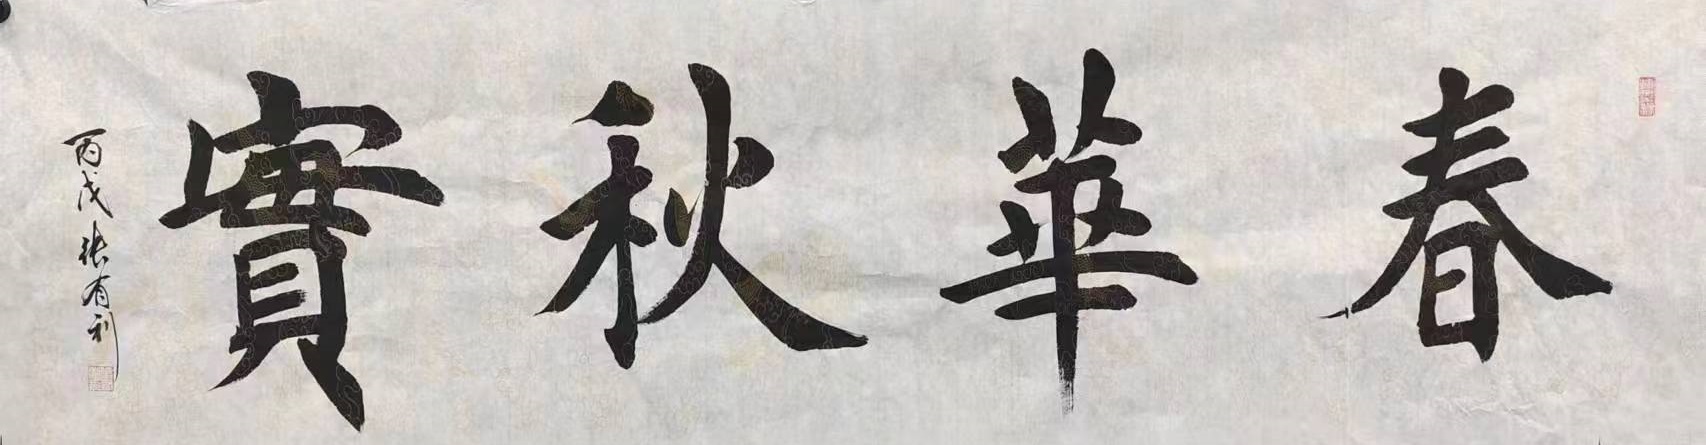 春華秋實
丙戌张有利